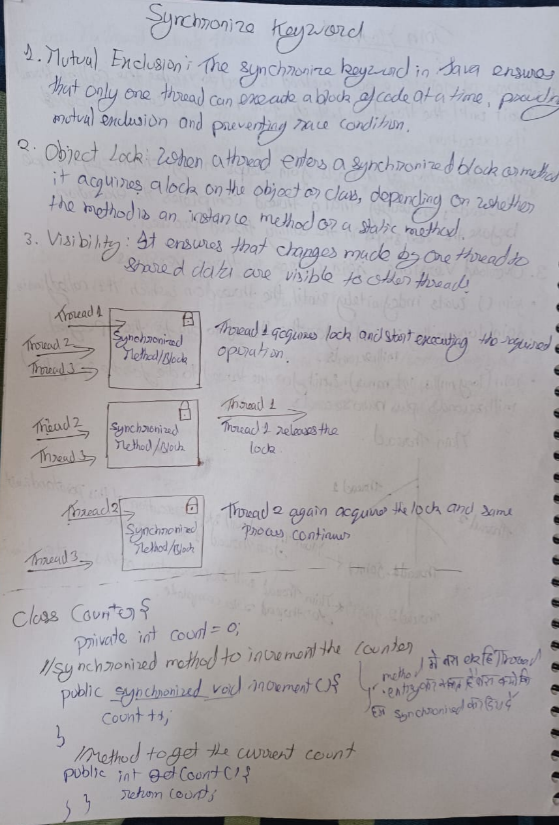 Synchronize Keyword
1. Mutual Exclusion: The synchronize keyword in Java ensures
that only one thread can execute a block of code at a time,
mutual exclusion and preventing race condition.
2. Object Lock: When a thread enters a synchronized block or
it acquires a lock on the object or class, depending on whether
the method is an instance method or a static method.
3. Visibility: It ensures that changes made by one thread to
shared data are visible to other threads
Thread 1
Thread 2
Thread 3
Synchronized
Method/Block
Thread 1 acquires lock and start executing the required
operation.
Thread 2
Thread 3
Synchronized
Method/Block
Thread 1
Thread 1 releases the
lock
Thread 2
Thread 3
Synchronized
Method/Block
Thread 2 again acquires the lock and same
process continues
class Counter {
private int count = 0;
// synchronized method to increment the counter
public synchronized void increment() {
count++;
}
method में बस एक ही Thread
entry
synchronized
// Method to get the current count
public int getCount() {
return count;
} }